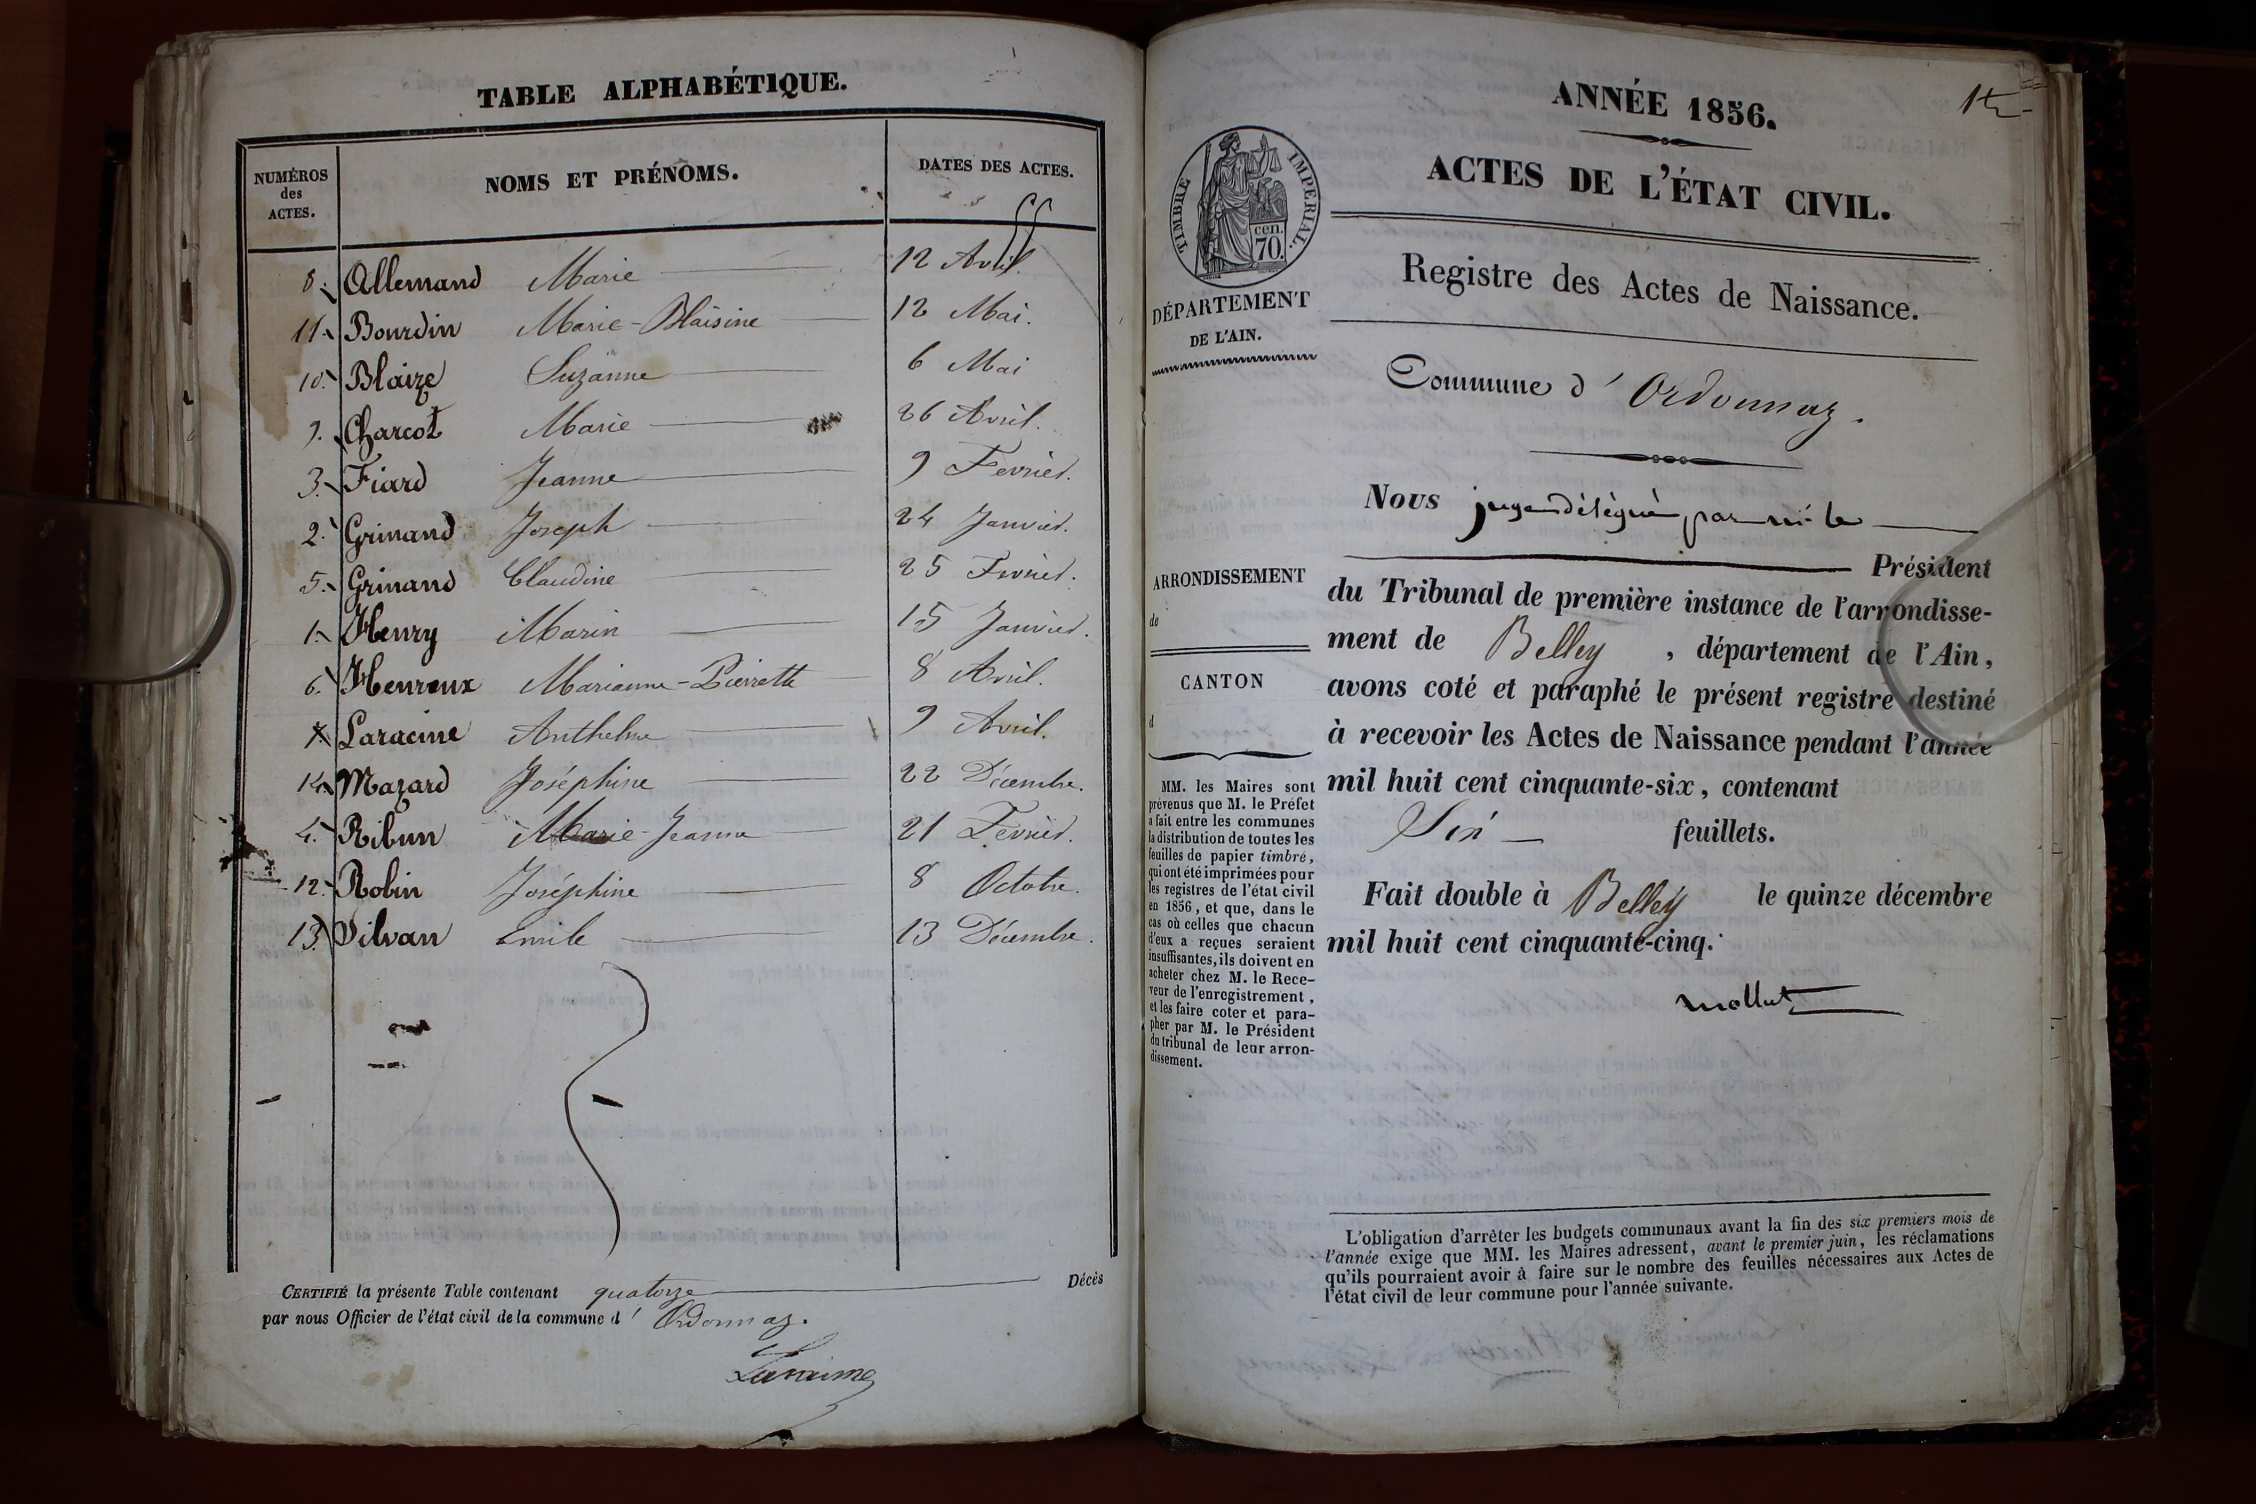 TABLE ALPHABÉTIQUE.
NUMÉROS des ACTES.
NOMS ET PRÉNOMS.
DATES DES ACTES.
8. Allemand Marie 12 Avril.
11. Bourdin Marie-Blaisine 12 Mai.
10. Blaize Suzanne 6 Mai
9. Charcot Marie 26 Avril.
3. Fiard Jeanne 9 Fevrier.
2. Grinand Joseph 24 Janvier.
5. Grinand Claudine 25 Fevrier.
1. Henry Marin 15 Janvier.
6. Heureux Marianne-Pierrette 8 Avril.
7. Laracine Anthelme 9 Avril.
14. Mazard Joséphine 22 Décembre.
4. Ribun Marie-Jeanne 21 Fevrier.
12. Robin Joséphine 8 Octobre.
13. Silvan Emile 13 Décembre.
CERTIFIÉ la présente Table contenant quatorze Décès
par nous Officier de l'état civil de la commune d' Ordonnaz.
Laracine
ANNÉE 1856.
ACTES DE L'ÉTAT CIVIL.
TIMBRE IMPERIAL.
cen.
70.
Registre des Actes de Naissance.
DÉPARTEMENT
DE L'AIN.
Commune d' Ordonnaz.
Nous juge délégué par mr le
Président
ARRONDISSEMENT
de
CANTON
d
du Tribunal de première instance de l'arrondisse-
ment de Belley, département de l'Ain,
avons coté et paraphé le présent registre destiné
à recevoir les Actes de Naissance pendant l'année
mil huit cent cinquante-six, contenant
Six feuillets.
Fait double à Belley le quinze décembre
mil huit cent cinquante-cinq.
MM. les Maires sont
prévenus que M. le Préfet
a fait entre les communes
la distribution de toutes les
feuilles de papier timbré,
qui ont été imprimées pour
les registres de l'état civil
en 1856, et que, dans le
cas où celles que chacun
d'eux a reçues seraient
insuffisantes, ils doivent en
acheter chez M. le Rece-
veur de l'enregistrement,
et les faire coter et para-
pher par M. le Président
du tribunal de leur arron-
dissement.
L'obligation d'arrêter les budgets communaux avant la fin des six premiers mois de
l'année exige que MM. les Maires adressent, avant le premier juin, les réclamations
qu'ils pourraient avoir à faire sur le nombre des feuilles nécessaires aux Actes de
l'état civil de leur commune pour l'année suivante.